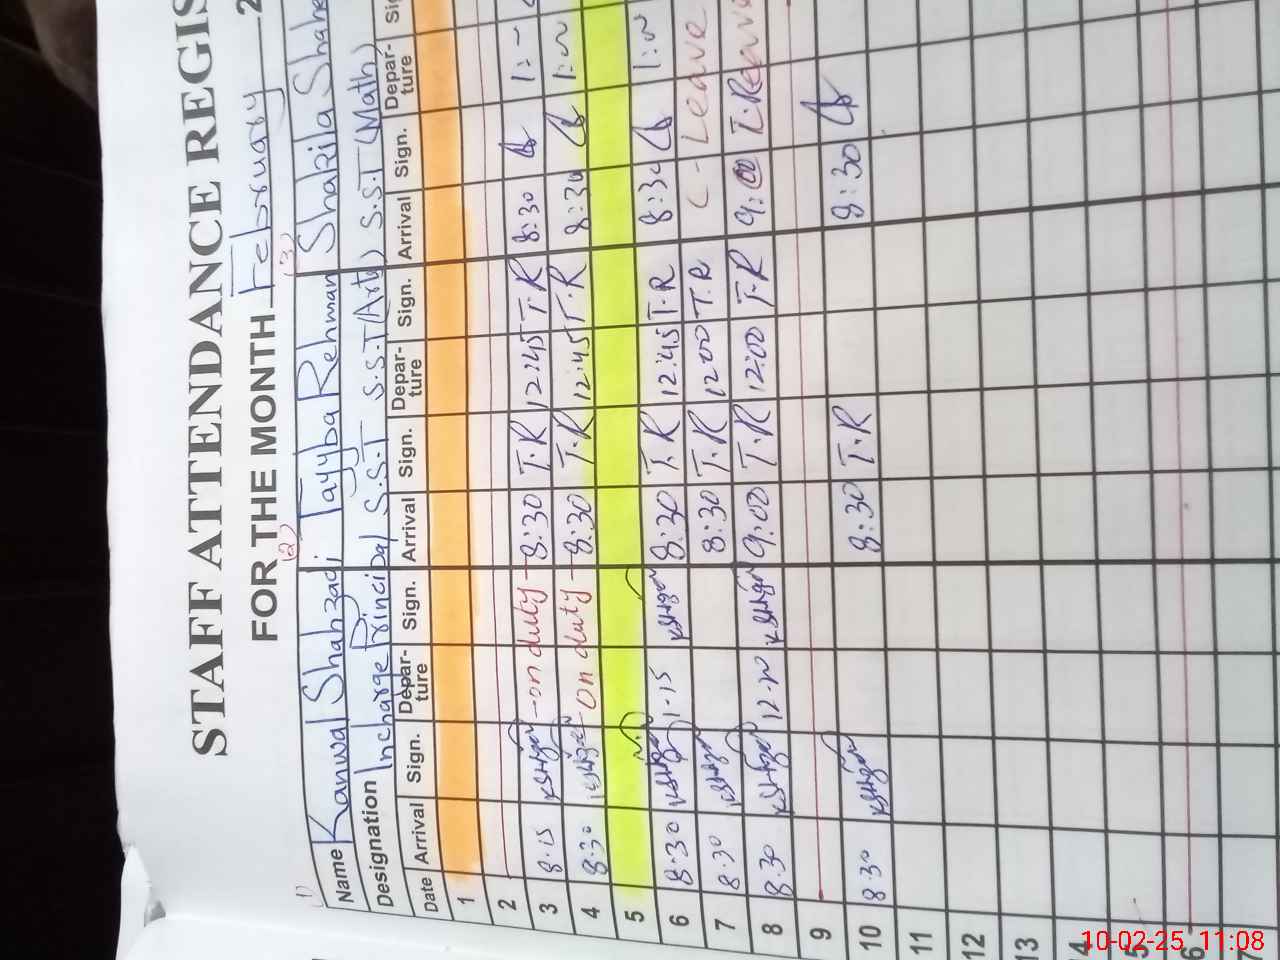 STAFF ATTENDANCE REGIS
FOR THE MONTH February 2
(1) (2) (3)
Name Kanwal Shahzadi Tayyba Rehman Shakila Shahe
Designation Incharge Principal S.S.T S.S.T (Arts) S.S.T (Math)
Date Arrival Sign. Depar-ture Sign. Arrival Sign. Depar-ture Sign. Arrival Sign. Depar-ture Si
1
2
3 8.15 - on duty - 8:30 T.R 12:45 T.R 8:30 1:-
4 8:30 - on duty - 8:30 T.R 12:45 T.R 8:30
5
6 8:30 1.15 8:30 T.R 12:45 T.R 8:30
7 8.30 8:30 T.R 1200 T.R C - Leave
8 8.30 9:00 T.R 12:00 T.R 9:00
9
10 8.30 8:30 T.R 8:30
11
12
13
14
5
6
7
10-02-25 11:08